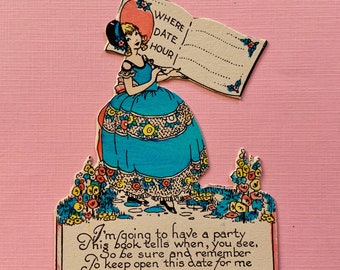 WHERE
DATE
HOUR
I'm going to have a party
This book tells when, you see,
So be sure and remember
To keep open this date for me